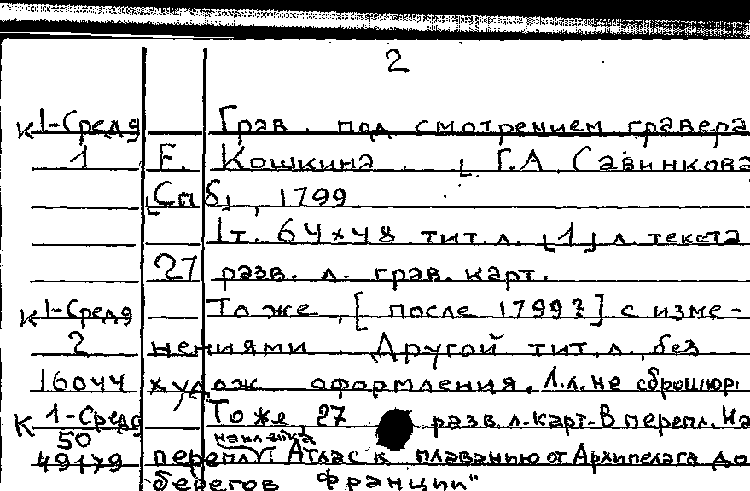 2
К 1-Средз Грав. под смотрением гравера
1 Е. Кошкина. [Г.А Савинкова
[Спб], 1799
1т. 64×48 тит.л. [1] л текста
27 разв. л. грав. карт.
К 1-Средз То же, [после 1799?] с изме-
2 нениями Другой тит.л, без
16044 худож оформления. Л.л. не сброшюр
К 1-Средз То же, 27 разв. л-карт-В перепл. На
50 наклейка
49179 перепл. "Атлас к плаванию от Архипелага до
берегов Франции"